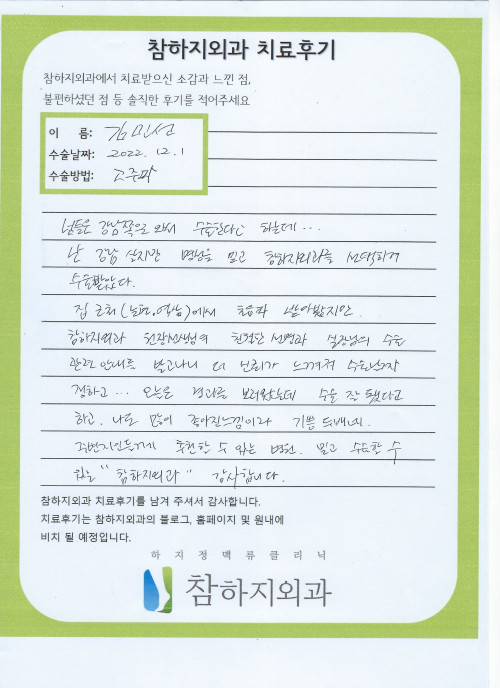 참하지외과 치료후기
참하지외과에서 치료받으신 소감과 느낀 점,
불편하셨던 점 등 솔직한 후기를 적어주세요
이 름: 김민선
수술날짜: 2022. 12. 1
수술방법: 고주파
남들은 강남쪽으로 와서 수술한다 하는데...
난 강남 살지만 명성을 믿고 참하지외과를 선택하여
수술받았다.
집 근처 에서 초음파 받아봤지만
참하지외과 원장선생님의 친절한 설명과 실장님의 수술
관련 안내를 받고나니 더 신뢰가 느껴져 수술날짜
정하고... 오늘은 경과를 보러왔는데 수술 잘 됐다고
하고, 나도 많이 좋아진느낌이라 기쁨 두배네.
주변지인들에게 추천할 수 있는 병원. 믿고 수술할 수
있는 "참하지외과" 감사합니다.
참하지외과 치료후기를 남겨 주셔서 감사합니다.
치료후기는 참하지외과의 블로그, 홈페이지 및 원내에
비치 될 예정입니다.
하지정맥류클리닉
참하지외과